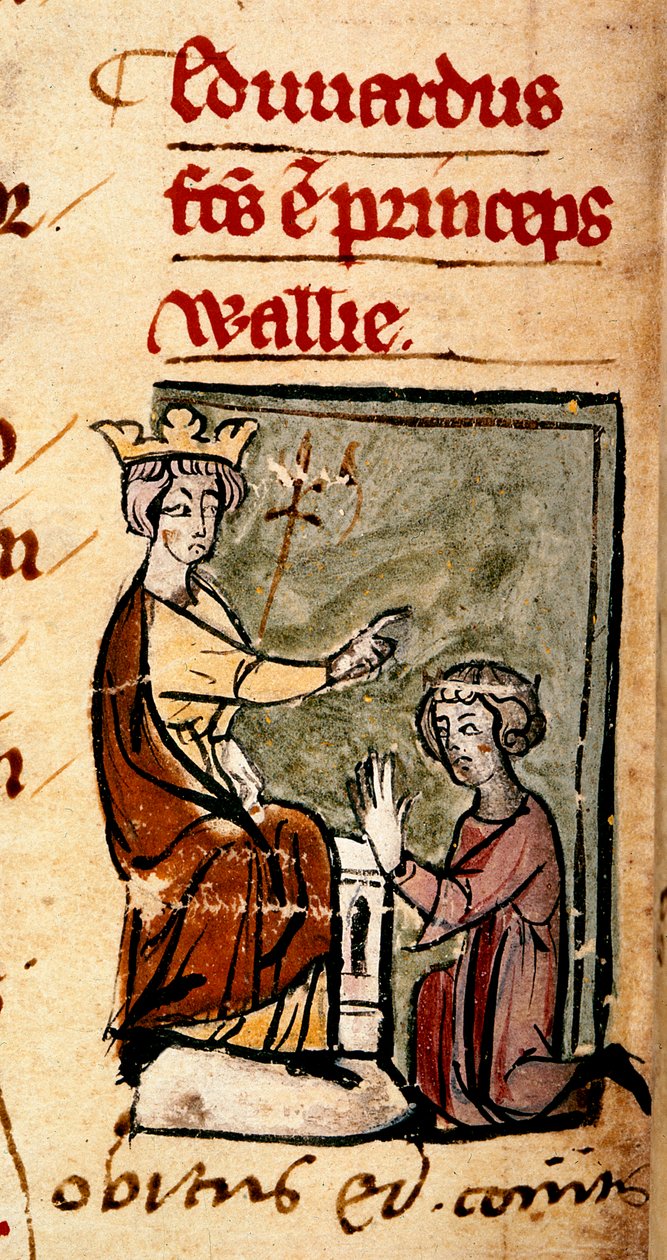 Edwardus
fcs ē princeps
wallie.
obitus Ed. comitis